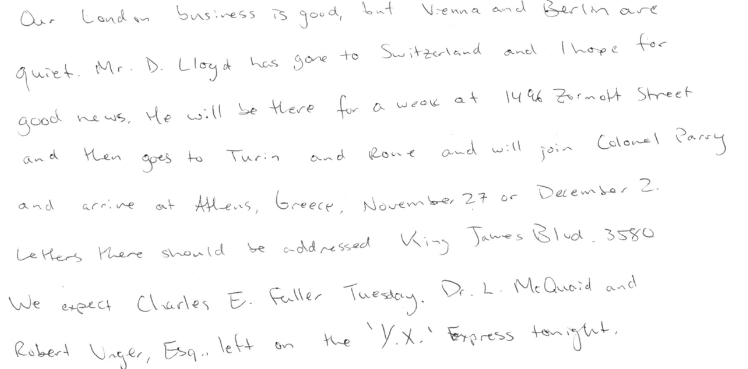 Our London business is good, but Vienna and Berlin are
quiet. Mr. D. Lloyd has gone to Switzerland and I hope for
good news. He will be there for a week at 1496 Zermott Street
and then goes to Turin and Rome and will join Colonel Parry
and arrive at Athens, Greece, November 27 or December 2.
Letters there should be addressed King James Blvd. 3580
We expect Charles E. Fuller Tuesday. Dr. L. McQuaid and
Robert Unger, Esq., left on the 'Y.X.' Express tonight.